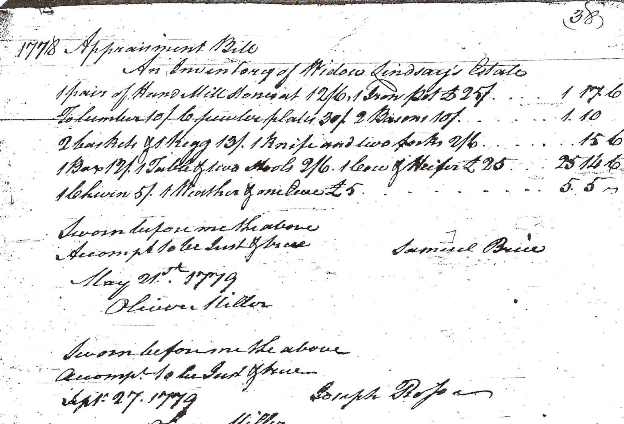 (38)
1778 Appraisment Bill
An Inventory of Widow Lindsay's Estate
1 pair of Hand Mill Stones at 12/6, 1 Iron Pot £ 25/. 1 17 6
To lumber 10/. 6 pewter plates 30/ 2 Basons 10/. 1. 10
2 baskets & 1 Kegg 13/. 1 Knife and two forks 2/6 15 6
1 Box 12/. 1 Table & two Stools 2/6. 1 Cow & Heifer £ 25 25 14 6
1 Churn 5/. 1 Weather & one Ewe £ 5 5. 5 "
Sworn before me the above
Accompt to be Just & true Samuel Brice
May 21st. 1779
Oliver Miller
Sworn before me the above
Accompt to be Just & true
Sept. 27. 1779 Joseph
Miller